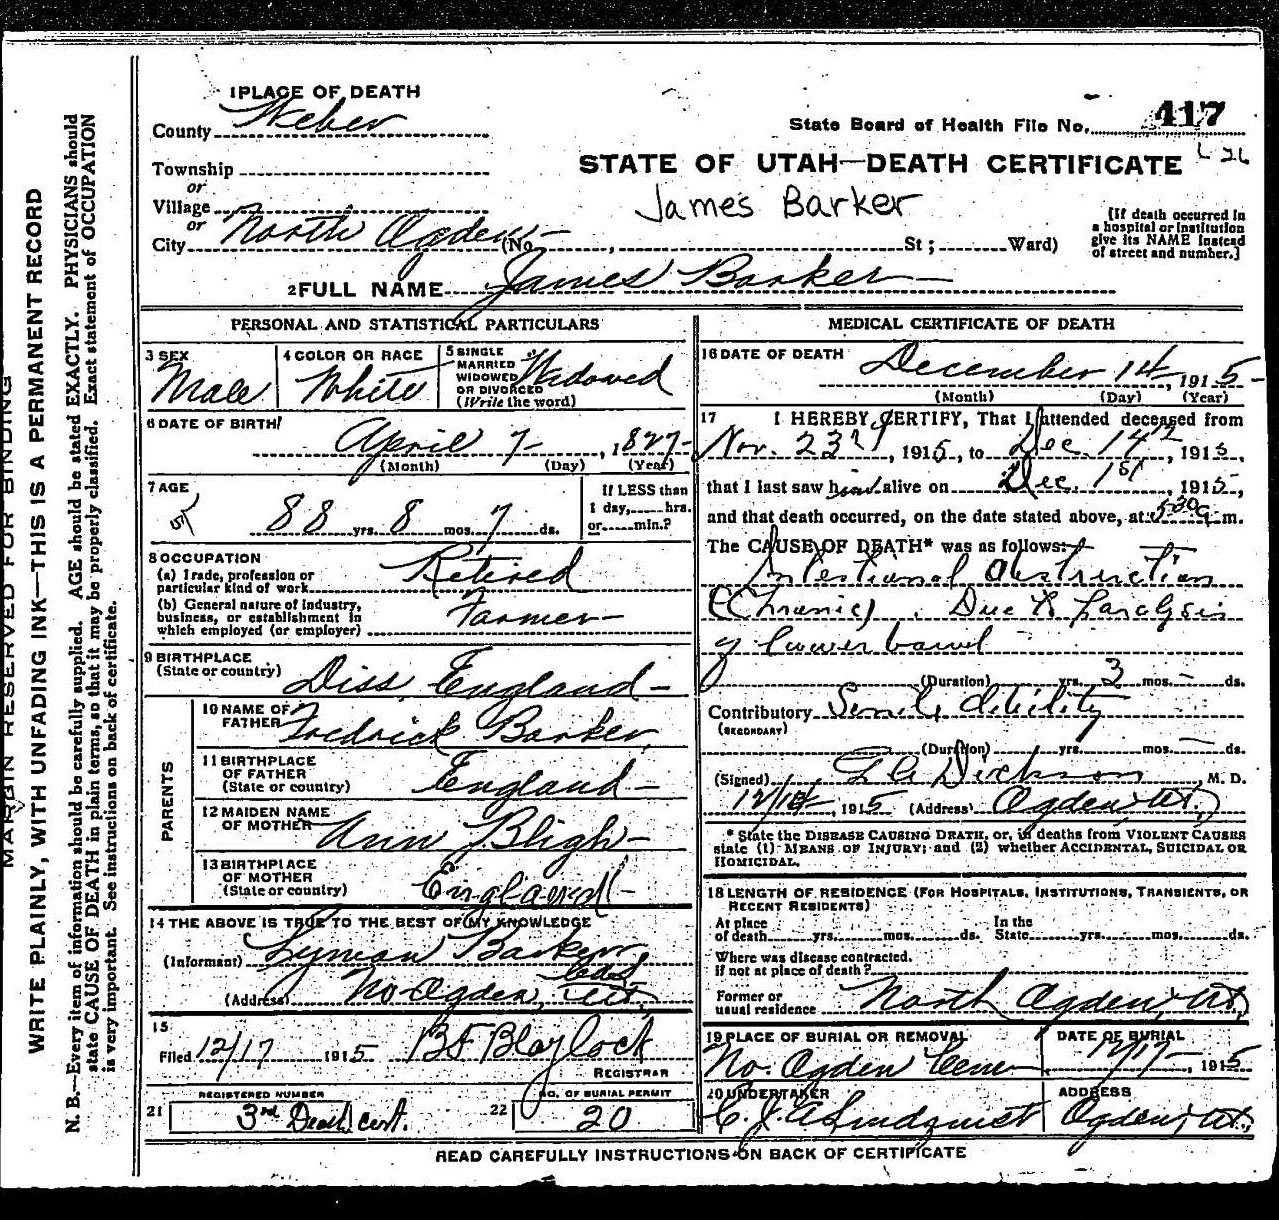 1 PLACE OF DEATH
County Weber
State Board of Health File No. 417
Township
or
Village
or
City North Ogden (No. , St ; Ward)
STATE OF UTAH—DEATH CERTIFICATE
James Barker
[If death occurred in
a hospital or institution
give its NAME instead
of street and number.]
2 FULL NAME James Barker
PERSONAL AND STATISTICAL PARTICULARS
3 SEX
Male
4 COLOR OR RACE
White
5 SINGLE
MARRIED
WIDOWED
OR DIVORCED
(Write the word)
Widowed
6 DATE OF BIRTH
April 7 , 1827
(Month) (Day) (Year)
7 AGE
88 yrs. 8 mos. 7 ds.
If LESS than
1 day, hrs.
or min.?
8 OCCUPATION
(a) Trade, profession or
particular kind of work Retired
(b) General nature of Industry,
business, or establishment in
which employed (or employer) Farmer
9 BIRTHPLACE
(State or country) Diss England
PARENTS
10 NAME OF
FATHER Fredrick Barker
11 BIRTHPLACE
OF FATHER
(State or country) England
12 MAIDEN NAME
OF MOTHER Ann Bligh
13 BIRTHPLACE
OF MOTHER
(State or country) England
14 THE ABOVE IS TRUE TO THE BEST OF MY KNOWLEDGE
(Informant) Lyman Barker
(Address) No. Ogden, Ut.
15
Filed 12/17 1915 BF Blaylock
REGISTRAR
21 REGISTERED NUMBER
3rd Death cert.
22 NO. OF BURIAL PERMIT
20
MEDICAL CERTIFICATE OF DEATH
16 DATE OF DEATH
December 14 , 1915
(Month) (Day) (Year)
17 I HEREBY CERTIFY, That I attended deceased from
Nov. 23rd , 1915, to Dec. 14th , 1915,
that I last saw him alive on Dec. 1st , 1915,
and that death occurred, on the date stated above, at 5:30 a m.
The CAUSE OF DEATH* was as follows:
Intestional obstruction
(Chronic). Due to paralysis
of lower bowel
(Duration) yrs. 3 mos. – ds.
Contributory Senile debility
(SECONDARY)
(Duration) yrs. mos. ds.
(Signed) Dickson, M. D.
1915 (Address) Ogden, Ut.
* State the DISEASE CAUSING DEATH, or, in deaths from VIOLENT CAUSES
state (1) MEANS OF INJURY; and (2) whether ACCIDENTAL, SUICIDAL OR
HOMICIDAL.
18 LENGTH OF RESIDENCE (FOR HOSPITALS, INSTITUTIONS, TRANSIENTS, OR
RECENT RESIDENTS)
At place
of death yrs. mos. ds.
In the
State yrs. mos. ds.
Where was disease contracted.
if not at place of death?
Former or
usual residence North Ogden, Ut.
19 PLACE OF BURIAL OR REMOVAL
No. Ogden Cem
DATE OF BURIAL
12/17 , 1915
20 UNDERTAKER
C. J. A. Lindquist
ADDRESS
Ogden, Ut.
READ CAREFULLY INSTRUCTIONS ON BACK OF CERTIFICATE
MARGIN RESERVED FOR BINDING
WRITE PLAINLY, WITH UNFADING INK—THIS IS A PERMANENT RECORD
N. B.—Every item of information should be carefully supplied. AGE should be stated EXACTLY. PHYSICIANS should
state CAUSE OF DEATH in plain terms, so that it may be properly classified. Exact statement of OCCUPATION
is very important. See instructions on back of certificate.